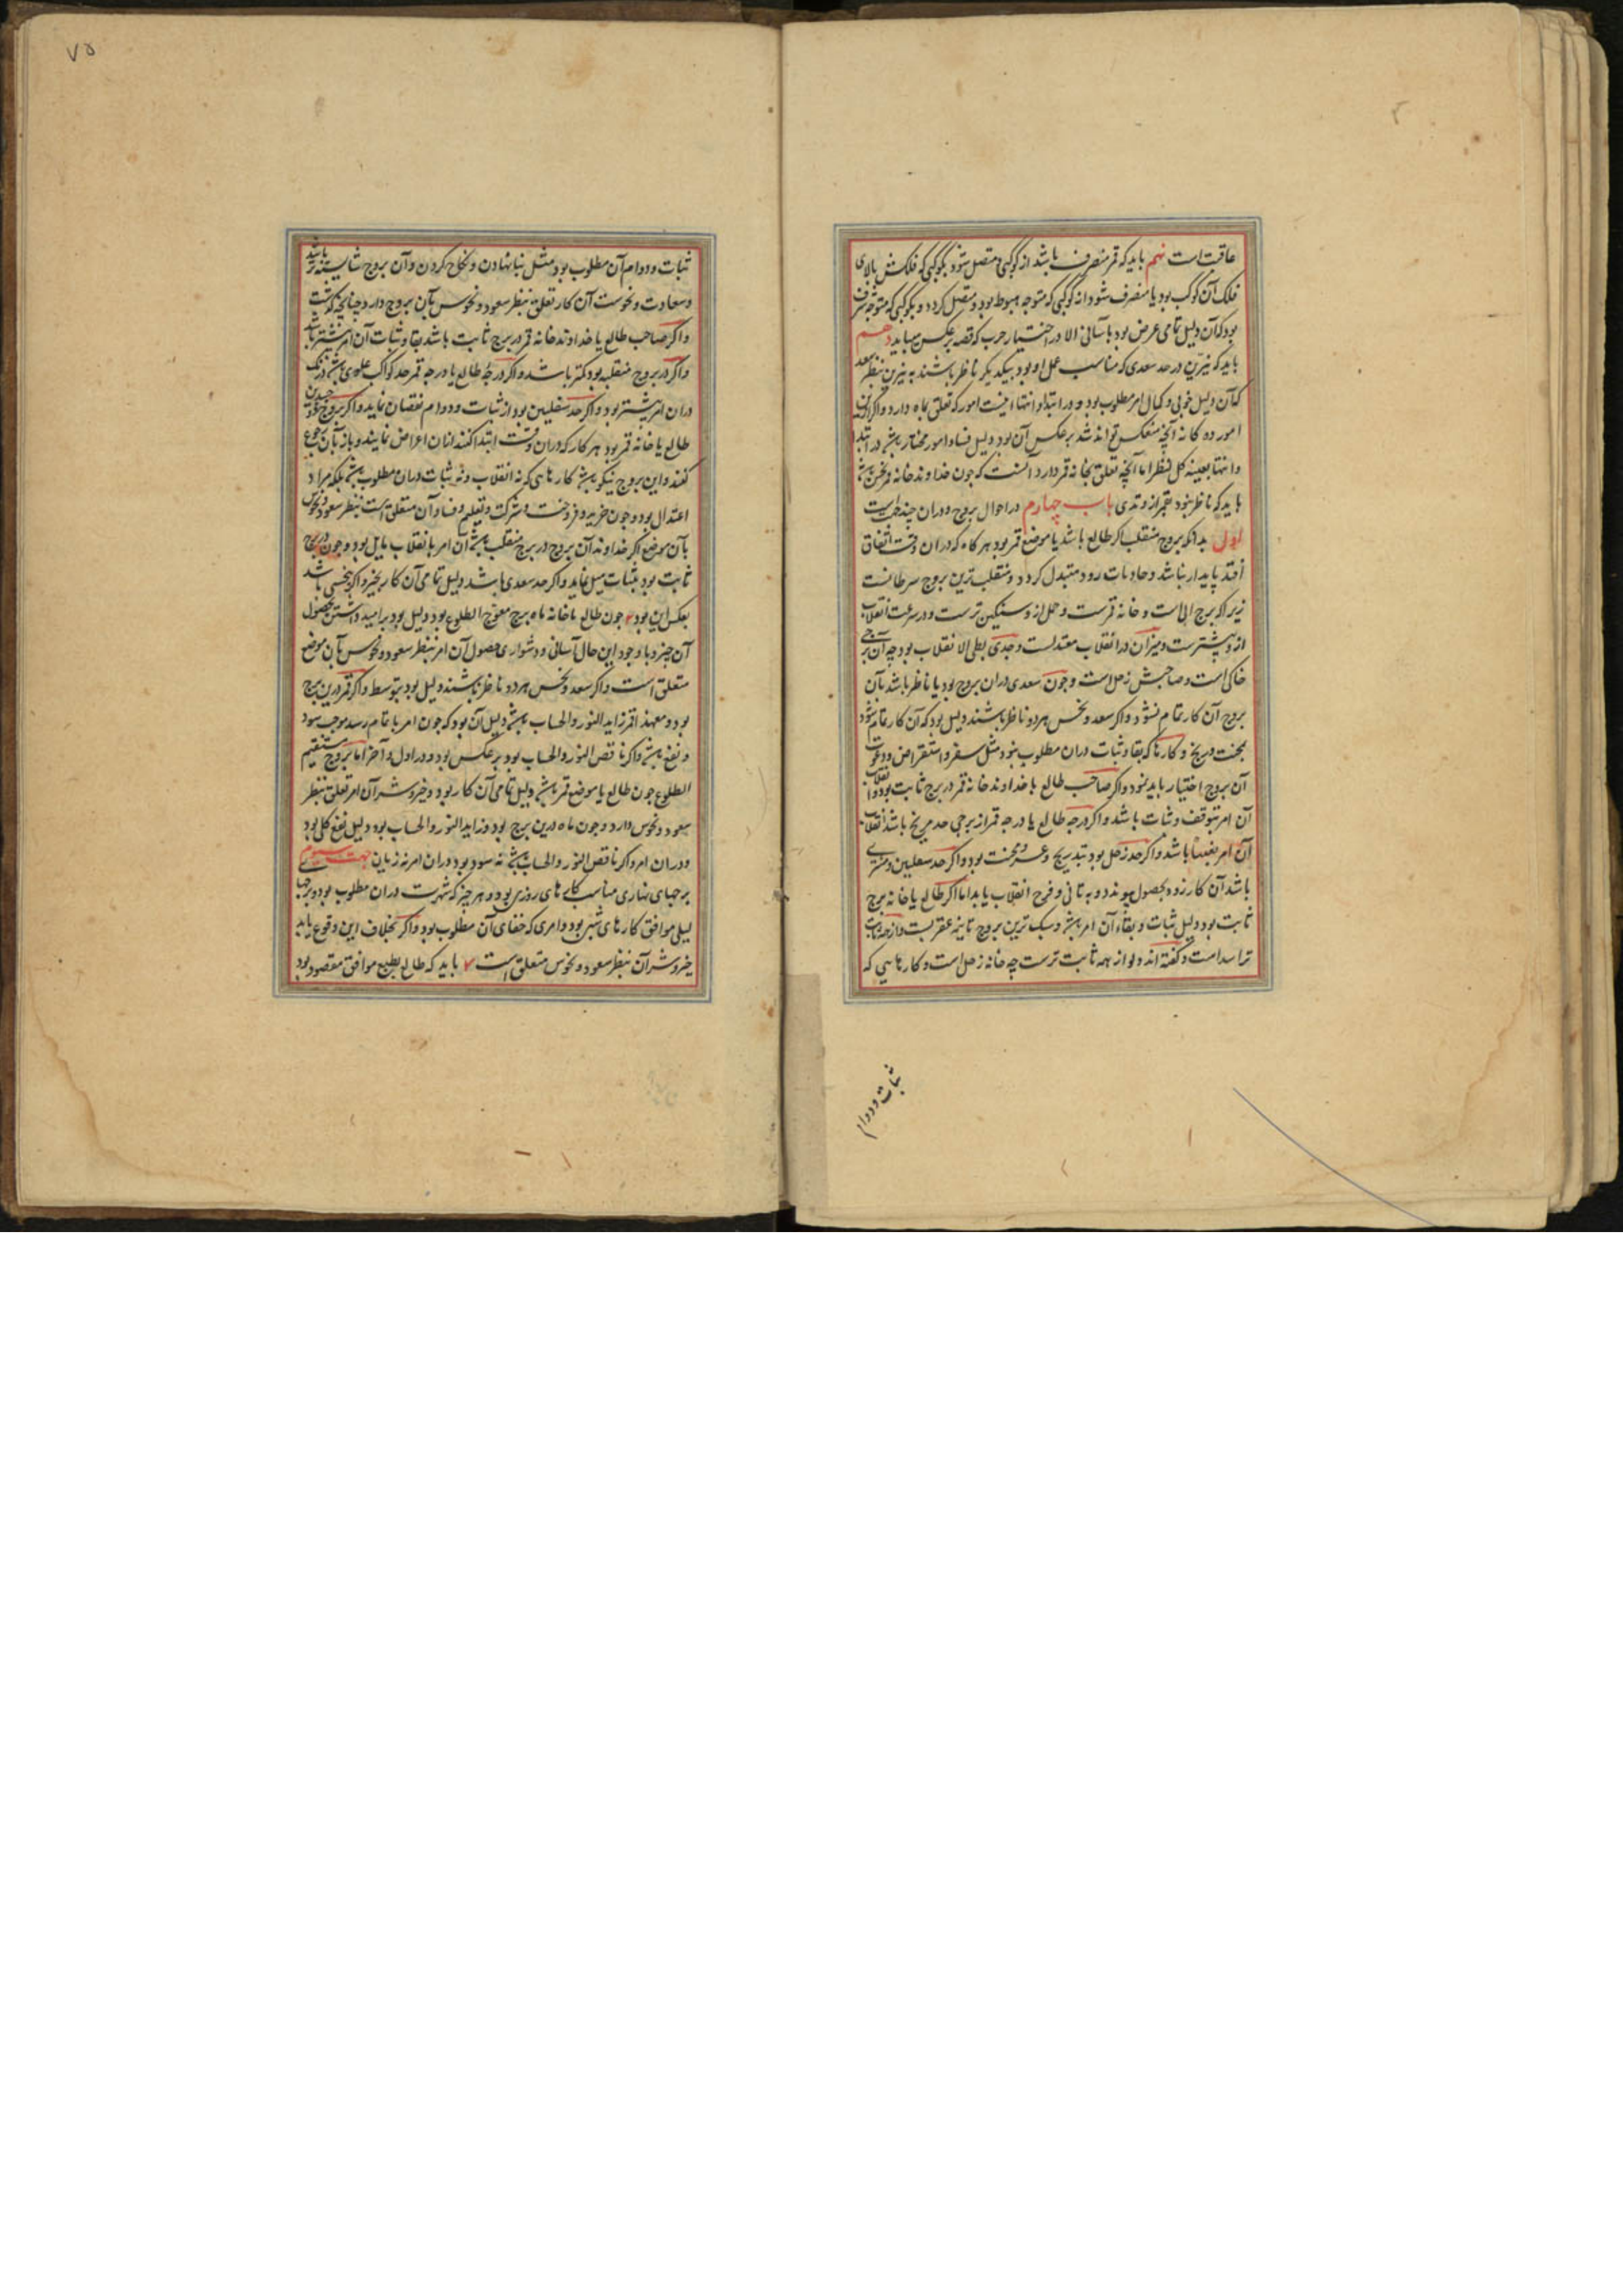 عاقبت است نهم باید که قمر منصرف باشد از کوکبی و متصل شود بکوکبی که فلکش بالای
فلک آن کوکب بود یا منصرف شود از کوکبی که متوجه هبوط بود و متصل کردد و بکوکبی که متوجه شرف
بود که آن دلیل تمامی عرض بود بآسانی الا در اختیار حرب که قصه برعکس میباید دهم
باید که نیرین در حد سعدی که مناسب عمل او بود بیکدیکر ناظر باشند به نیرین بنظر سعد
که آن دلیل خوبی و کمال امر مطلوب بود و در ابتدا و انتها اینست امور که تعلق بماه دارد و اکر این
امور ده کانه آنچه منعکس تواند شد برعکس آن بود دلیل فساد امور مختار باشد در ابتدا
و انتها بعینه کل نظر اما آنچه تعلق بخانه قمر دارد آنست که چون خداوند خانه قمر نحس باشد
باید که ناظر نبود بقمر از وتدی باب چهارم در احوال بروج و در ان چند جهت است
اول بدانکه بروج منقلب اکر طالع باشد یا موضع قمر بود هر کاه که در ان وقت اتفاق
افتد پایدار نباشد و حادثات رود متبدل کردد و منقلب ترین بروج سرطانست
زیرا که برج آبی است و خانه قمرست و حمل از و سنکین ترست و در سرعت انقلاب
از و بیشترست و میزان در انقلاب معتدلست و جدی بطی الانقلاب بود چه آن برج
خاکی است و صاحبش زحل است و چون سعدی در ان بروج بود یا ناظر باشد بآن
بروج آن کار تمام نشود و اکر سعد و نحس هر دو ناظر باشند دلیل بود که آن کار تمام شود
بمحنت و برنج و کارها که بقا و ثبات در ان مطلوب نبود مثل سفر و استقراض و دعوت
آن بروج اختیار باید نمود و اکر صاحب طالع یا خداوند خانه قمر در برج ثابت بود و انقلاب
آن امر بتوقف و ثبات باشد و اکر درجه طالع یا درجه قمر از برجی حد مریخ باشد انقلاب
آن امر بغبتا باشد و اکر حد زحل بود بتدریج و عسر و محنت بود و اکر حد سفلیین و مشتری
باشد آن کار زود بحصول پیوندد و به تانی و فرح انقلاب یابد اما اکر طالع یا خانه برج
ثابت بود دلیل ثبات و بقاء آن امر باشد و سبک ترین بروج ثابته عقربست و از همه ثابت
تر اسد است و کفته اند دلو از همه ثابت ترست چه خانه زحل است و کارهایی که
ثبات و دوام
۷۵
ثبات و دوام آن مطلوب بود مثل بنا نهادن و نکاح کردن و آن بروج شایسته تر باشد
و سعادت و نحوست آن کار تعلق بنظر سعود و نحوس بآن بروج دارد چنانچه کذشت
و اکر صاحب طالع یا خداوند خانه قمر در برج ثابت باشد بقا و ثبات آن امر بیشتر باشد
و اکر در بروج منقلبه بود کمتر باشد و اکر درجه طالع یا درجه قمر حد کواکب علوی باشد درنک
در ان امر بیشتر بود و اکر حد سفلیین بود از ثبات و دوام نقصان نماید و اکر بروج ذو جسدین
طالع یا خانه قمر بود هر کار که در ان وقت ابتدا کنند از ان اعراض نمایند و باز بآن رجوع
کنند و این بروج نیکو باشد کارهایی که نه انقلاب و نه ثبات در ان مطلوب باشد بلکه مراد
اعتدال بود و چون خرید و فروخت و شرکت و تعلیم و فساد آن متعلق است بنظر سعود و نحوس
بآن موضع اکر خداوند آن بروج در برج منقلب باشد آن امر بانقلاب مایل بود و چون در برج
ثابت بود بثبات میل نماید و اکر حد سعدی باشد دلیل تمامی آن کار بخیر و اکر بنحسی باشد
بعکس این بود ۲ چون طالع یا خانه ماه برج معوج الطلوع بود دلیل بود بر امید داشتن بحصول
آن چیز و با وجود این حال آسانی و دشواری حصول آن امر بنظر سعود و نحوس بآن موضع
متعلق است و اکر سعد و نحس هر دو ناظر باشند دلیل بود بتوسط و اکر قمر درین برج
بود و معهذا قمر زاید النور و الحساب باشد دلیل آن بود که چون امر باتمام رسد موجب سود
و نفع باشد و اکر ناقص النور و الحساب بود برعکس بود در اول و آخر اما بروج مستقیم
الطلوع چون طالع یا موضع قمر باشد دلیل تمامی آن کار بود و خیر و شر آن امر تعلق بنظر
سعود و نحوس دارد و چون ماه درین برج بود و زاید النور و الحساب بود دلیل نفع کلی بود
و در ان امر و اکر ناقص النور و الحساب باشد نه سود بود در ان امر نه زیان جهت سیوم
برجهای نهاری مناسب کارهای روزی بود و هر چیز که شهرت در ان مطلوب بود و برجها
لیلی موافق کارهای شبی بود و امری که خفای آن مطلوب بود و اکر بخلاف این وقوع یابد
خیر و شر آن بنظر سعود و نحوس متعلق است ۴ باید که طالع بطبع موافق مقصود بود